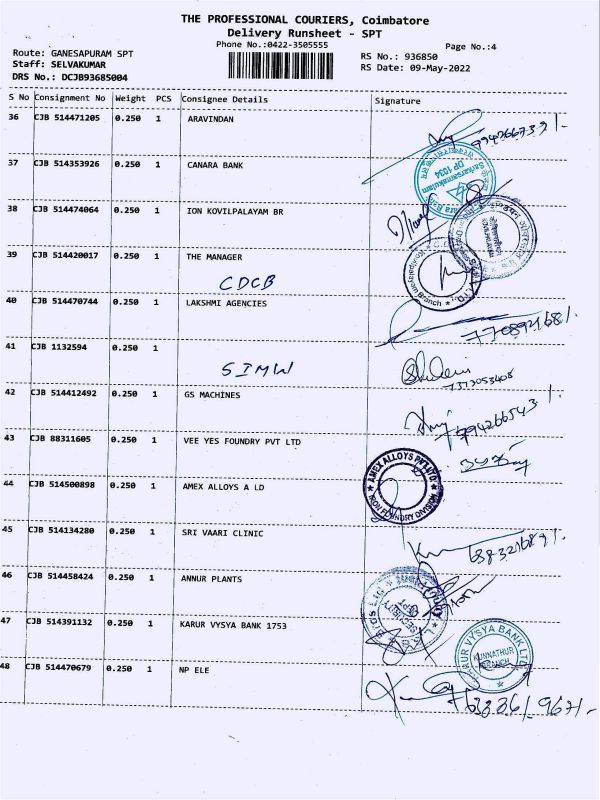 THE PROFESSIONAL COURIERS, Coimbatore
Delivery Runsheet - SPT
Phone No.:0422-3505555
Page No.:4
Route: GANESAPURAM SPT
Staff: SELVAKUMAR
DRS No.: DCJB93685004
RS No.: 936850
RS Date: 09-May-2022
S No Consignment No Weight PCS Consignee Details Signature
36 CJB 514471205 0.250 1 ARAVINDAN
37 CJB 514353926 0.250 1 CANARA BANK
DP 1034
38 CJB 514474064 0.250 1 ION KOVILPALAYAM BR
39 CJB 514420017 0.250 1 THE MANAGER
CDCB
40 CJB 514470744 0.250 1 LAKSHMI AGENCIES
41 CJB 1132594 0.250 1
SIMW
7373053408
42 CJB 514412492 0.250 1 GS MACHINES
43 CJB 88311605 0.250 1 VEE YES FOUNDRY PVT LTD
44 CJB 514500898 0.250 1 AMEX ALLOYS A LD
AMEX ALLOYS PVT LTD
IRON FOUNDRY DIVISION
45 CJB 514134280 0.250 1 SRI VAARI CLINIC
46 CJB 514458424 0.250 1 ANNUR PLANTS
SECURITY
47 CJB 514391132 0.250 1 KARUR VYSYA BANK 1753
KARUR VYSYA BANK LTD
KUNNATHUR
BRANCH
48 CJB 514470679 0.250 1 NP ELE